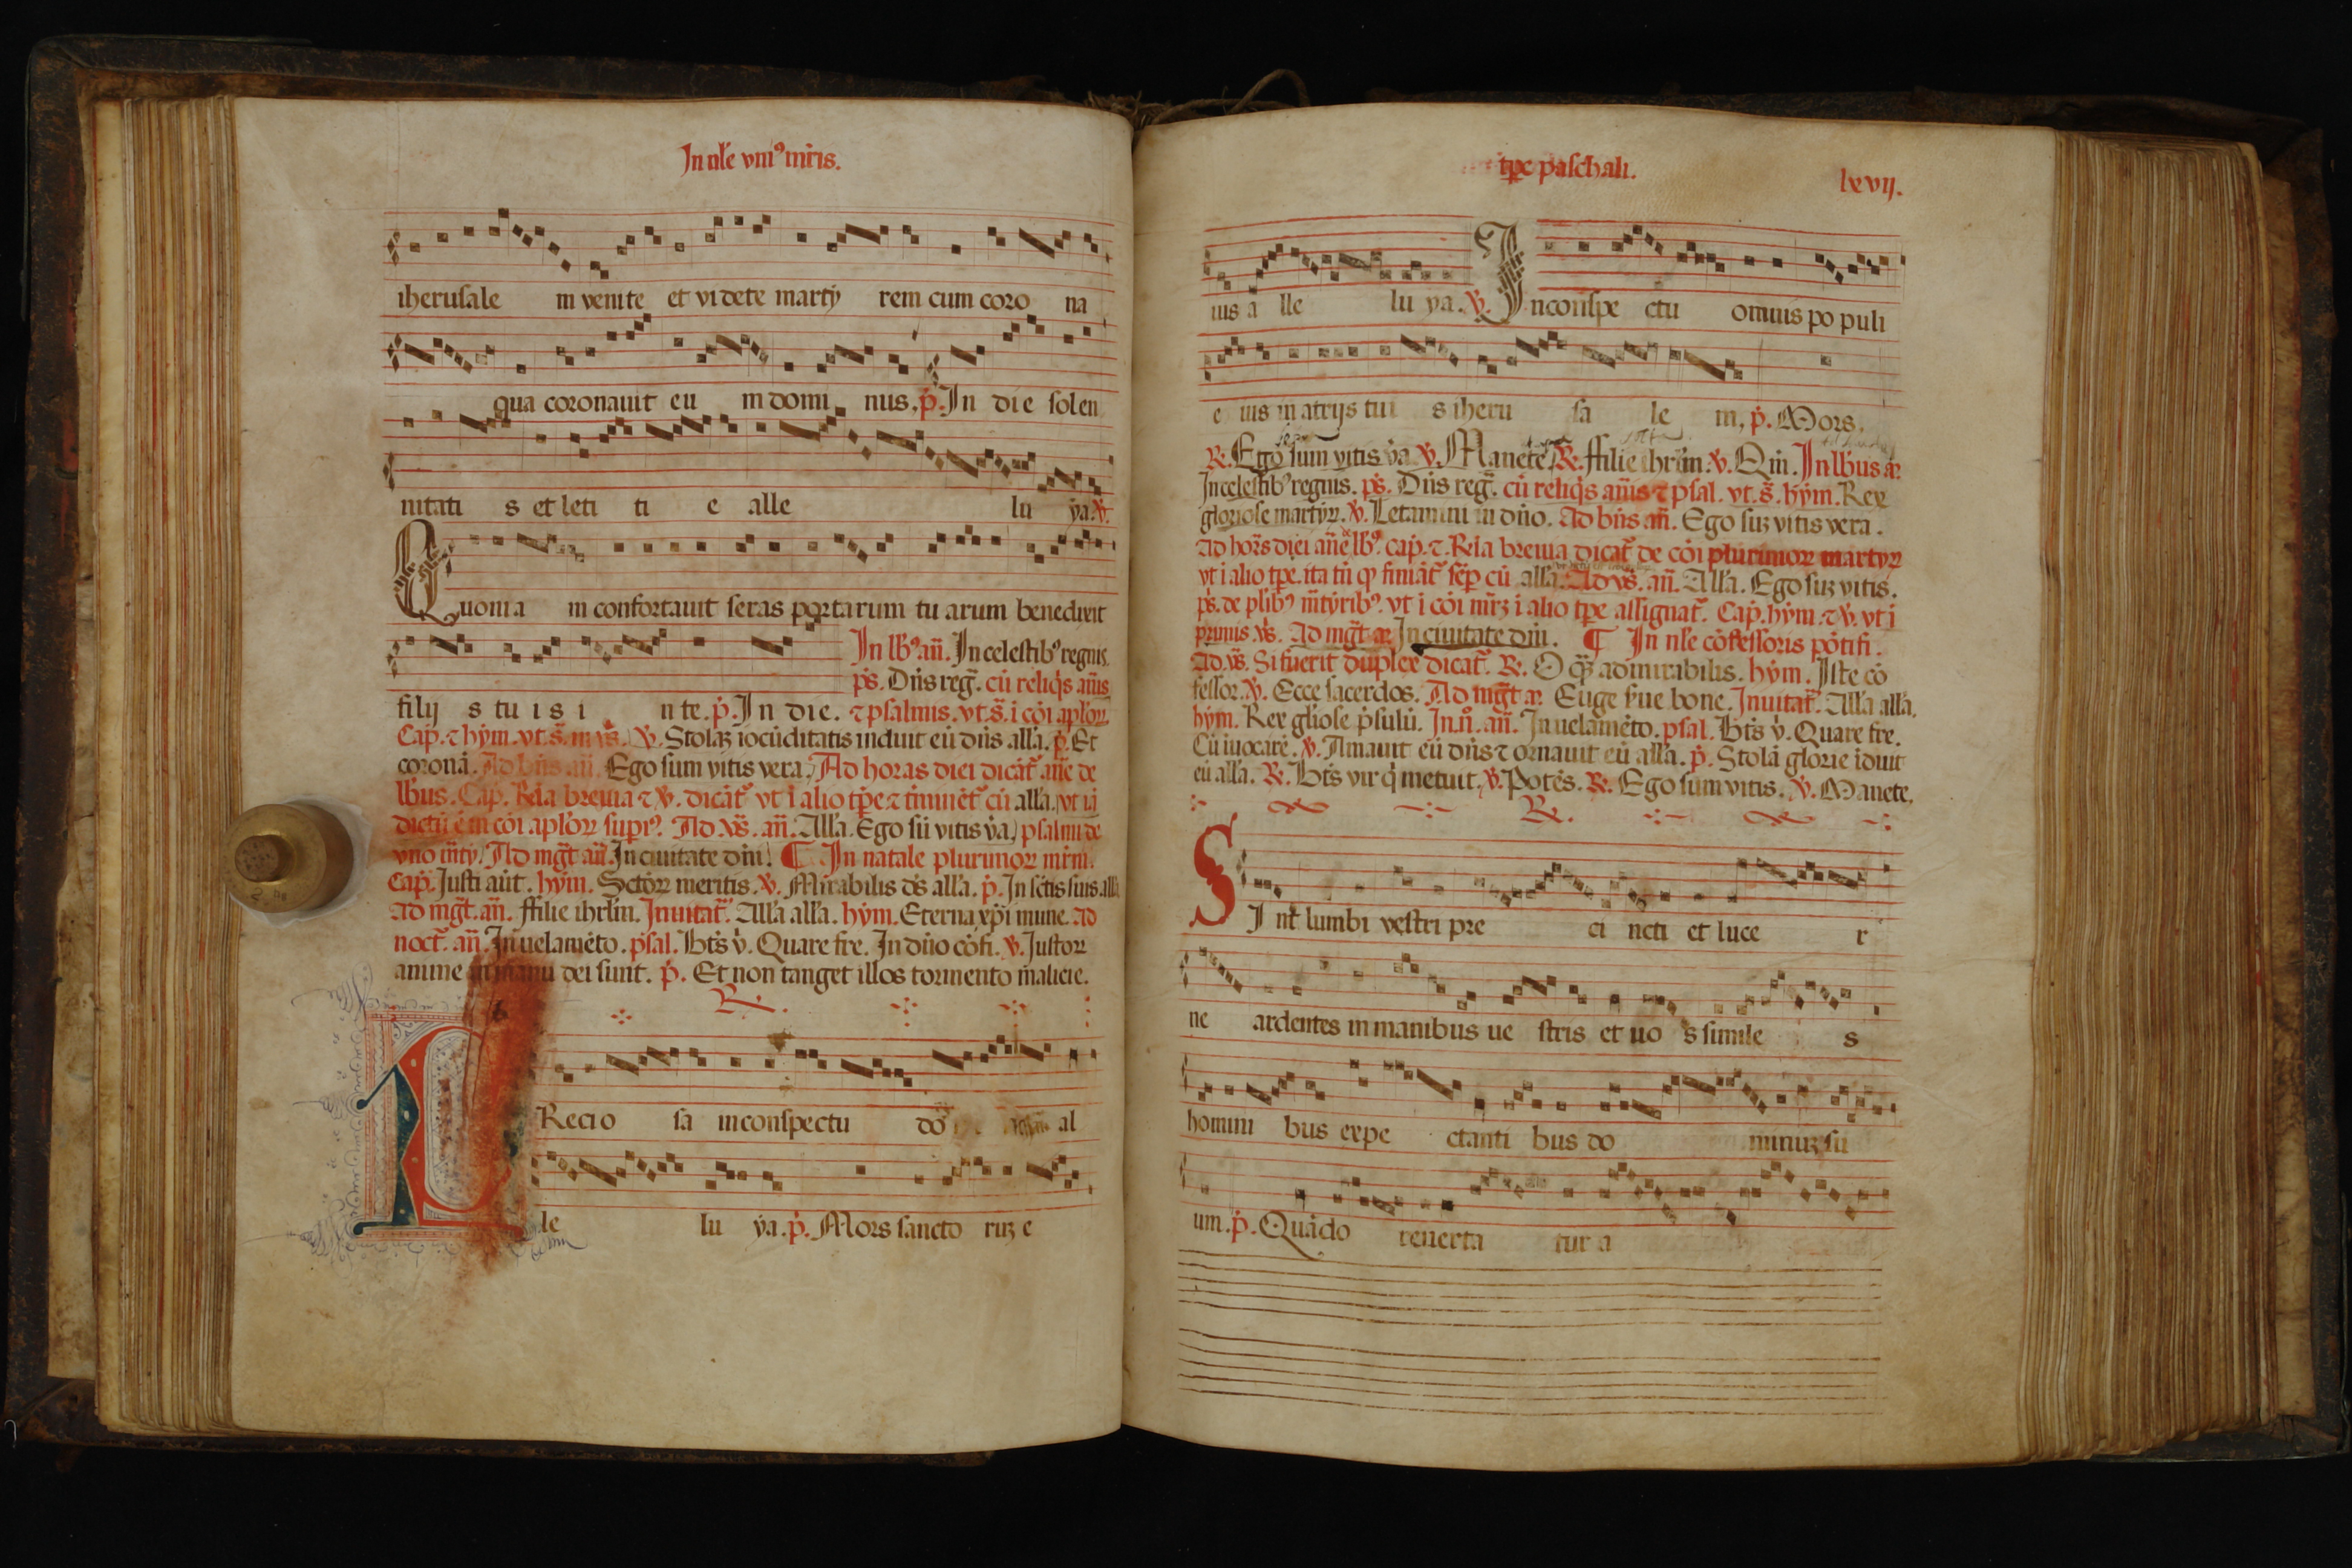 In nl̄e vniꝰ mr̄is.
iherusale m venite et videte marty rem cum coro na
qua coronauit eu m domi nus. p̄. In die solen
nitati s et leti ti e alle lu ya. v̄.
Quonia m confortauit seras portarum tu arum benedixit
In lb̄ꝰ an̄. In celestibꝰ regnis.
ps̄. Dn̄s reḡ. cū reliq̄s an̄is
filij s tu i s i n te. p̄. In die. ⁊ psalmis. vt. s̄. i cōi apl̄oꝝ.
Cap̄. ⁊ hym̄. vt. s̄. in vs̄. v̄. Stolaꝫ iocūditatis induit eū dn̄s all'a. p̄. Et
coronā. Ad bn̄s an̄ Ego sum vitis vera. Ad horas diei dicāt̄ an̄e de
lb̄us. Cap̄. Rēla breuia ⁊ v̄. dicāt̄ vt i alio tp̄e ⁊ t̄minēt̄ cū all'a. vt iā
dictū ē in cōi apl̄oꝝ supiꝰ. Ad vs̄. an̄. All'a. Ego sū vitis v̄a. psalmi de
vno m̄ty. Ad mḡt an̄. In ciuitate dn̄i. ¶ In natale plurimoꝝ mr̄m.
Cap̄. Justi aūt. hym̄. Sctōꝝ meritis. v̄. Mirabilis ds̄ all'a. p̄. In sc̄tis suis all'a
Ad mḡt. an̄. ffilie ihrl̄m. Inuitat̄. All'a all'a. hym̄. Eterna xp̄i mune. Ad
noct̄. an̄. In uelamēto. psal. Bt̄s v̄. Quare fre. In dn̄o cōfi. v̄. Justoꝝ
anime in manu dei sunt. p̄. Et non tanget illos tormento malicie.
R̄.
PRecio sa in conspectu do al
le lu ya. p̄. Mors sancto ruꝫ e
tp̄e paschali.
lxvij.
ius a lle lu ya. v̄. In conspe ctu omnis po puli
e ius in atrijs tui s iheru sa le m, p̄. Mors.
R̄. Ego sum vitis v̄a v̄. Manete. R̄. ffilie ihrl̄m. v̄. Qm̄. In lb̄us an̄.
In celestibꝰ regnis. ps̄. Dn̄s reḡ. cū reliq̄s an̄is ⁊ psal. vt. s̄. hym̄. Rex
gloriose martyꝝ. v̄. Letamini in dn̄o. Ad bn̄s an̄. Ego suꝫ vitis vera.
Ad hor̄s diei an̄e lb̄ꝰ. cap̄. ⁊. Rēla breuia dicāt̄ de cōi plurimoꝝ martyꝝ
vt i alio tp̄e. ita tn̄ ꝙ finiāt̄ sēp cū all'a. Ad vs̄. an̄. All'a. Ego suꝫ vitis.
ps̄. de plibꝰ m̄tyribꝰ. vt i cōi mr̄ꝫ i alio tp̄e assignat̄. Cap̄. hym̄. ⁊ v̄. vt i
primis vs̄. Ad mḡt an̄ In ciuitate dn̄i. ¶ In nl̄e cōfessoris pōtifi.
Ad. vs̄. Si fuerit duplex dicat̄. R̄. O qꝫ admirabilis. hym̄. Iste cō
fessor. v̄. Ecce sacerdos. Ad mḡt an̄. Euge s̄ue bone. Inuitat̄. All'a all'a.
hym̄. Rex gl̄iose p̄sulū. In. n̄. an̄. In uelamēto. psal. Bt̄s v̄. Quare fre.
Cū iuocarē. v̄. Amauit eū dn̄s ⁊ ornauit eū all'a. p̄. Stolā glorie iduit
eū all'a. R̄. Bt̄s vir q̄ metuit. v̄. Potēs. R̄. Ego sum vitis. v̄. Manete.
R̄.
SInt̄ lumbi vestri pre ci ncti et luce r
ne ardentes in manibus ue stris et uo s simile s
homini bus expe ctanti bus do minuꝫ su
um. p̄. Quādo reuerta tur a